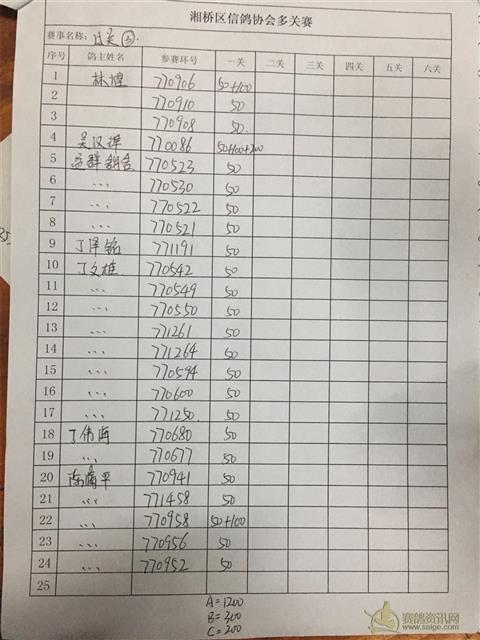 湘桥区信鸽协会多关赛
赛事名称: 过关 ③.
序号 鸽主姓名 参赛环号 一关 二关 三关 四关 五关 六关
1 林煌 770906 50+100
2 770910 50
3 770908 50.
4 吴汉 770086 50+100+200
5 770523 50
6 ... 770530 50
7 ... 770522 50
8 ... 770521 50
9 丁泽铭 771191 50
10 丁文雄 770542 50
11 ... 770549 50
12 ... 770550 50
13 ... 771261 50
14 ... 771264 50
15 ... 770594 50
16 ... 770600 50
17 ... 771250. 50
18 丁伟海 770680 50
19 ... 770677 50
20 平 770941 50
21 ... 771458 50
22 ... 770958 50+100
23 ... 770956 50
24 ... 770952 50
25
A=1200
B=300
C=200
赛鸽资讯网
www.saige.com